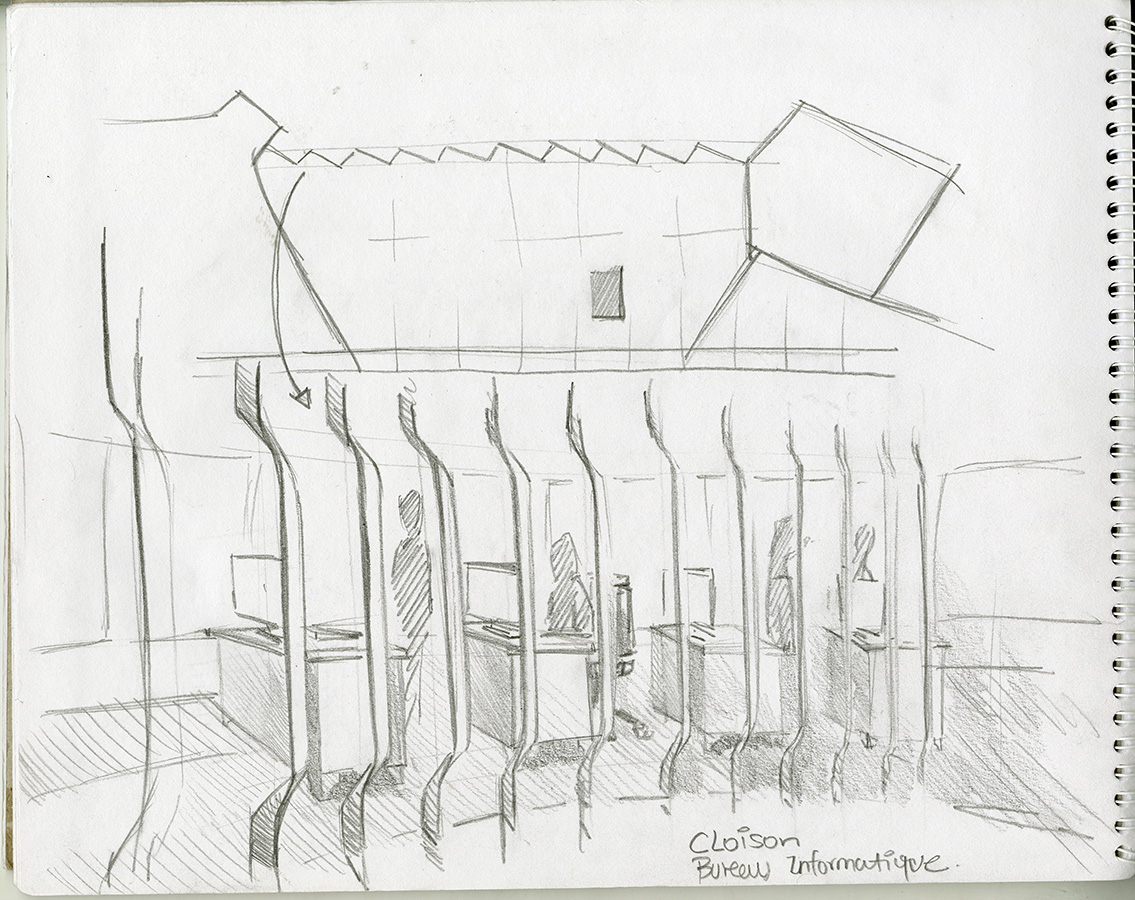 CLoison
Bureau Informatique.